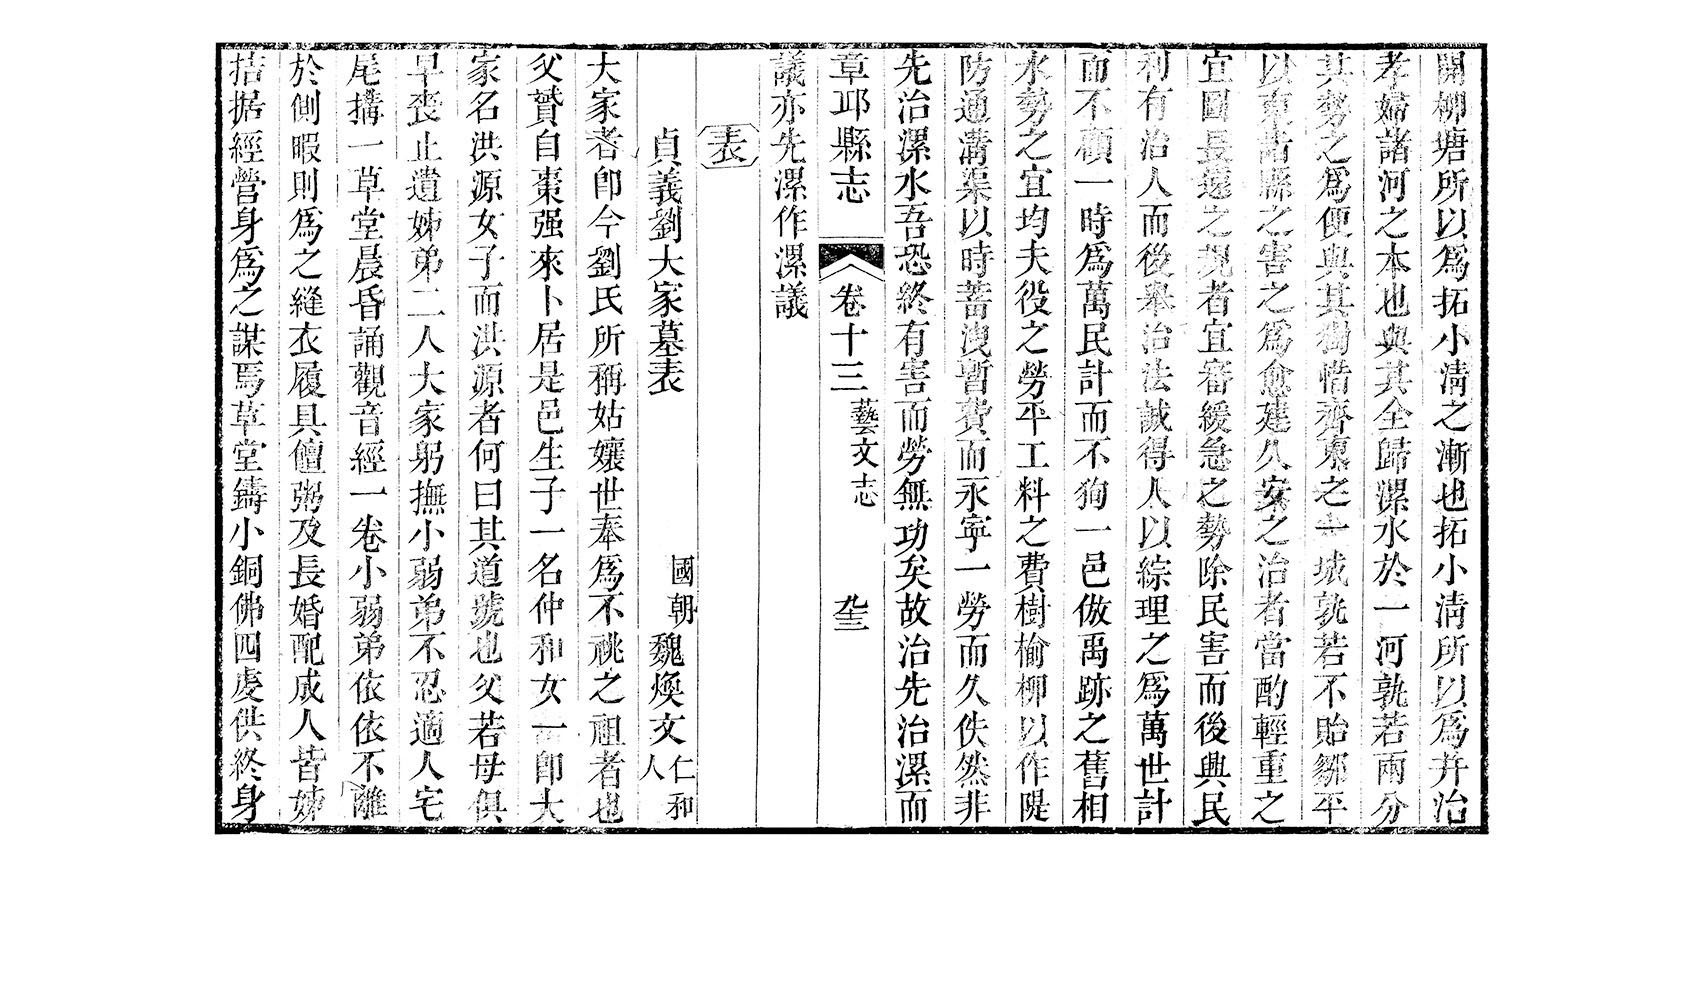 開柳塘所以爲拓小淸之漸也拓小淸所以爲并治
孝婦諸河之本也與其全歸漯水於一河孰若兩分
其勢之爲便與其獨惜齊東之一城孰若不貽鄒平
以東諸縣之害之爲愈建久安之治者當酌輕重之
宜圖長遠之規者宜審緩急之勢除民害而後興民
利有治人而後舉治法誠得人以綜理之爲萬世計
而不顧一時爲萬民計而不狥一邑倣禹跡之舊相
水勢之宜均夫役之勞平工料之費樹榆柳以作隄
防通溝渠以時蓄洩暫費而永寧一勞而久佚然非
先治漯水吾恐終有害而勞無功矣故治先治漯而
章邱縣志 卷十三 藝文志 九十三
議亦先漯作漯議
表
貞義劉大家墓表 國朝 魏煥文 仁和人
大家者卽今劉氏所稱姑孃世奉爲不祧之祖者也
父贇自棗强來卜居是邑生子一名仲和女一卽大
家名洪源女子而洪源者何曰其道號也父若母俱
早喪止遺姊弟二人大家躬撫小弱弟不忍適人宅
尾搆一草堂晨昏誦觀音經一卷小弱弟依依不離
於側暇則爲之縫衣履具饘粥及長婚配成人皆姊
拮据經營身爲之謀焉草堂鑄小銅佛四虔供終身